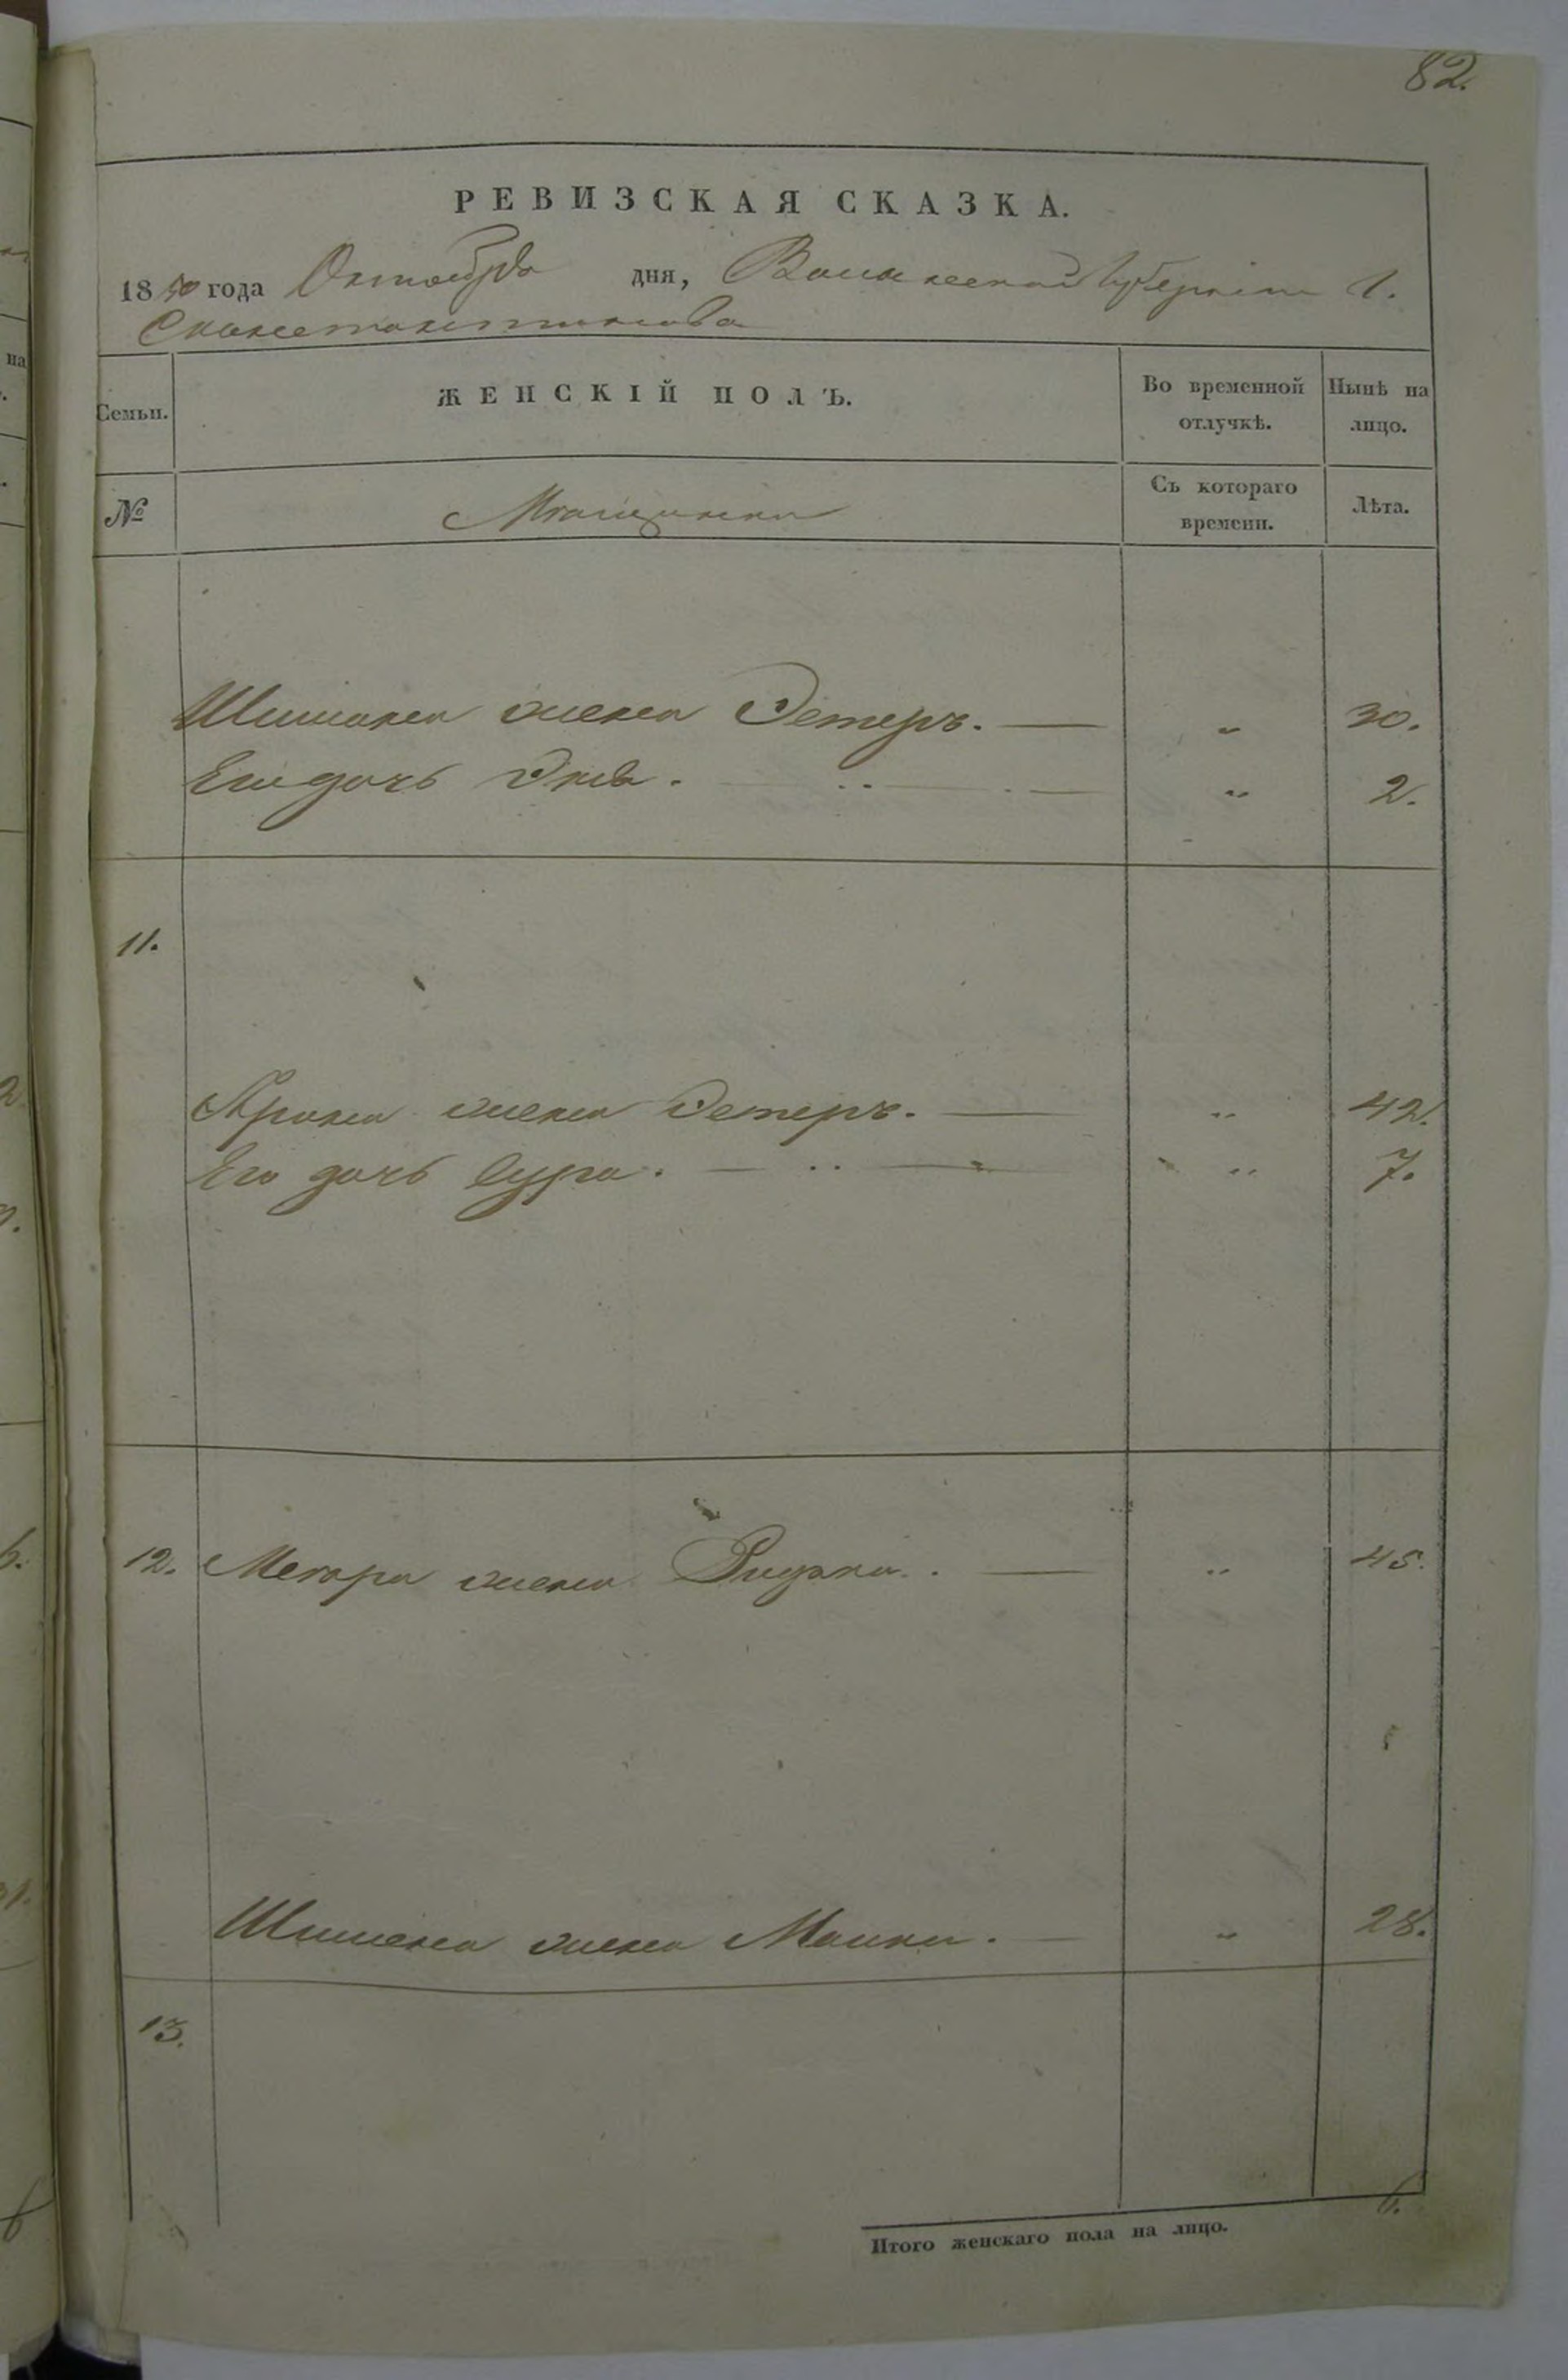 82.
РЕВИЗСКАЯ СКАЗКА.
1850 года Октября дня, Волынской Губернии г.
Староконстантинова
Семьи. ЖЕНСКІЙ ПОЛЪ. Во временной отлучкѣ. Нынѣ на лицо.
№ Мѣщанки Съ котораго времени. Лѣта.
жена Эстеръ. — „ 30.
Его дочь — „ 2.
11.
Арона жена Эстеръ. — „ 42.
Его дочь Сура. — „ 7.
12. жена — „ 45.
жена — „ 28.
13.
Итого женскаго пола на лицо. 6.